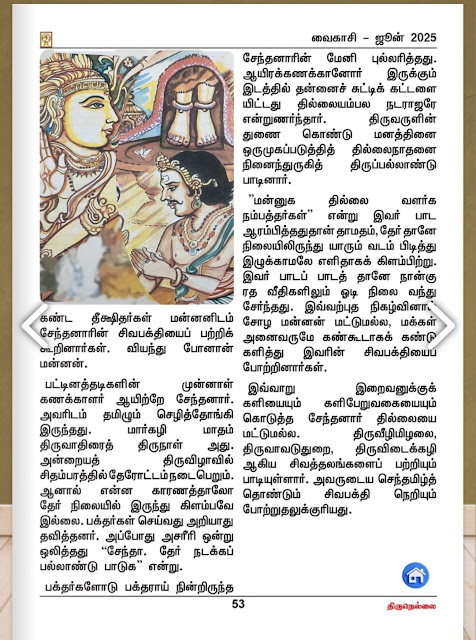 வைகாசி – ஜூன் 2025
கண்ட தீக்ஷிதர்கள் மன்னனிடம்
சேந்தனாரின் சிவபக்தியைப் பற்றிக்
கூறினார்கள். வியந்து போனான்
மன்னன்.
பட்டினத்தடிகளின் முன்னாள்
கணக்காளர் ஆயிற்றே சேந்தனார்.
அவரிடம் தமிழும் செழித்தோங்கி
இருந்தது. மார்கழி மாதம்
திருவாதிரைத் திருநாள் அது.
அன்றையத் திருவிழாவில்
சிதம்பரத்தில் தேரோட்டம் நடைபெறும்.
ஆனால் என்ன காரணத்தாலோ
தேர் நிலையில் இருந்து கிளம்பவே
இல்லை. பக்தர்கள் செய்வது அறியாது
தவித்தனர். அப்போது அசரீரி ஒன்று
ஒலித்தது “சேந்தா. தேர் நடக்கப்
பல்லாண்டு பாடுக” என்று.
பக்தர்களோடு பக்தராய் நின்றிருந்த
சேந்தனாரின் மேனி புல்லரித்தது.
ஆயிரக்கணக்கானோர் இருக்கும்
இடத்தில் தன்னைச் சுட்டிக் கட்டளை
யிட்டது தில்லையம்பல நடராஜரே
என்றுணர்ந்தார். திருவருளின்
துணை கொண்டு மனத்தினை
ஒருமுகப்படுத்தித் தில்லைநாதனை
நினைந்துருகித் திருப்பல்லாண்டு
பாடினார்.
”மன்னுக தில்லை வளர்க
நம்பத்தர்கள்” என்று இவர் பாட
ஆரம்பித்ததுதான் தாமதம், தேர் தானே
நிலையிலிருந்து யாரும் வடம் பிடித்து
இழுக்காமலே எளிதாகக் கிளம்பிற்று.
இவர் பாடப் பாடத் தானே நான்கு
ரத வீதிகளிலும் ஓடி நிலை வந்து
சேர்ந்தது. இவ்வற்புத நிகழ்வினை
சோழ மன்னன் மட்டுமல்ல, மக்கள்
அனைவருமே கண்கூடாகக் கண்டு
களித்து இவரின் சிவபக்தியைப்
போற்றினார்கள்.
இவ்வாறு இறைவனுக்குக்
களியையும் களிபேறுவகையையும்
கொடுத்த சேந்தனார் தில்லையை
மட்டுமல்ல. திருவீழிமிழலை,
திருவாவடுதுறை, திருவிடைக்கழி
ஆகிய சிவத்தலங்களைப் பற்றியும்
பாடியுள்ளார். அவருடைய செந்தமிழ்த்
தொண்டும் சிவபக்தி நெறியும்
போற்றுதலுக்குரியது.
53
திருநெல்லை